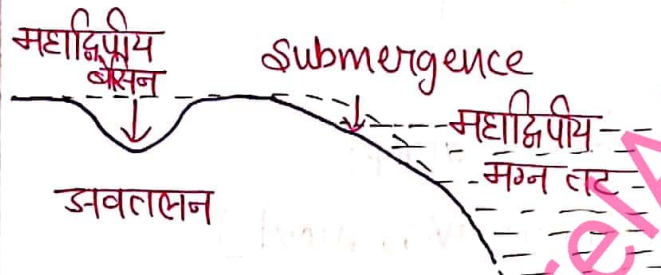 महाद्विपीय
बेसिन
Submergence
महाद्विपीय
मग्न तट
अवतलन